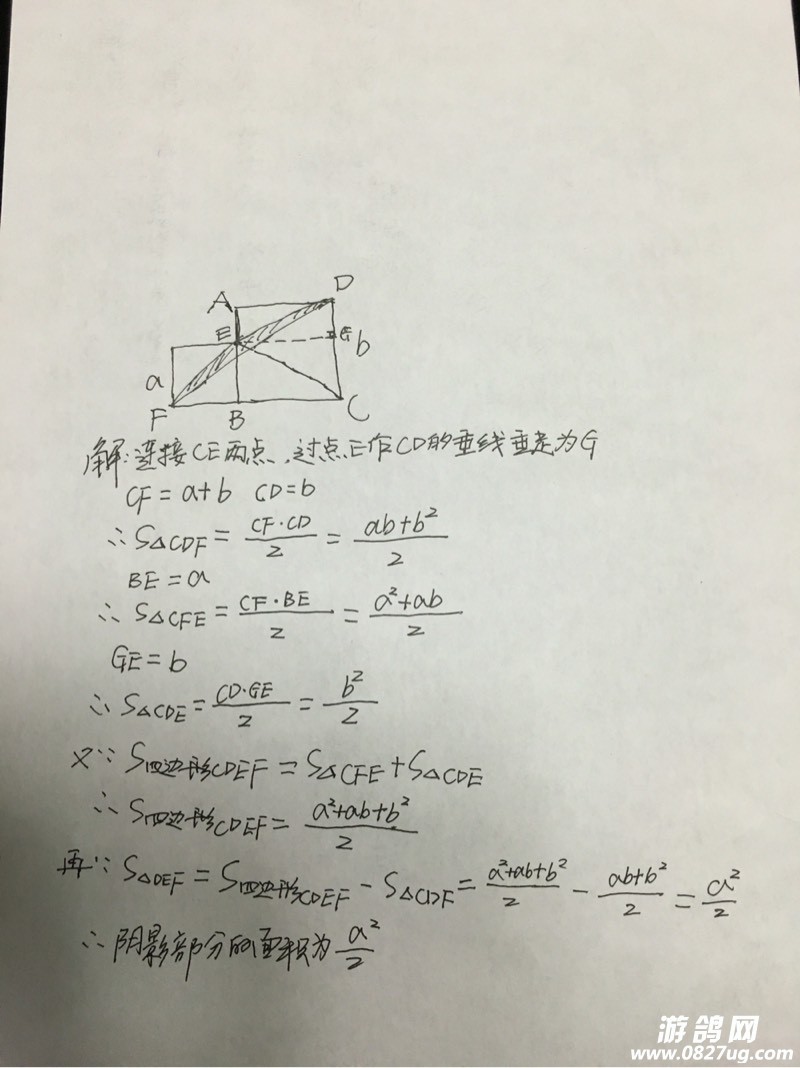 A D
E G b
a
F B C
解:连接CE两点,过点E作CD的垂线垂足为G
CF=a+b CD=b
∴S△CDF=CF·CD/2=ab+b²/2
BE=a
∴S△CFE=CF·BE/2=a²+ab/2
GE=b
∴S△CDE=CD·GE/2=b²/2
又∵S四边形CDEF=S△CFE+S△CDE
∴S四边形CDEF=a²+ab+b²/2
再∵S△DEF=S四边形CDEF-S△CDF=a²+ab+b²/2-ab+b²/2=a²/2
∴阴影部分的面积为a²/2
游鸽网
www.0827ug.com